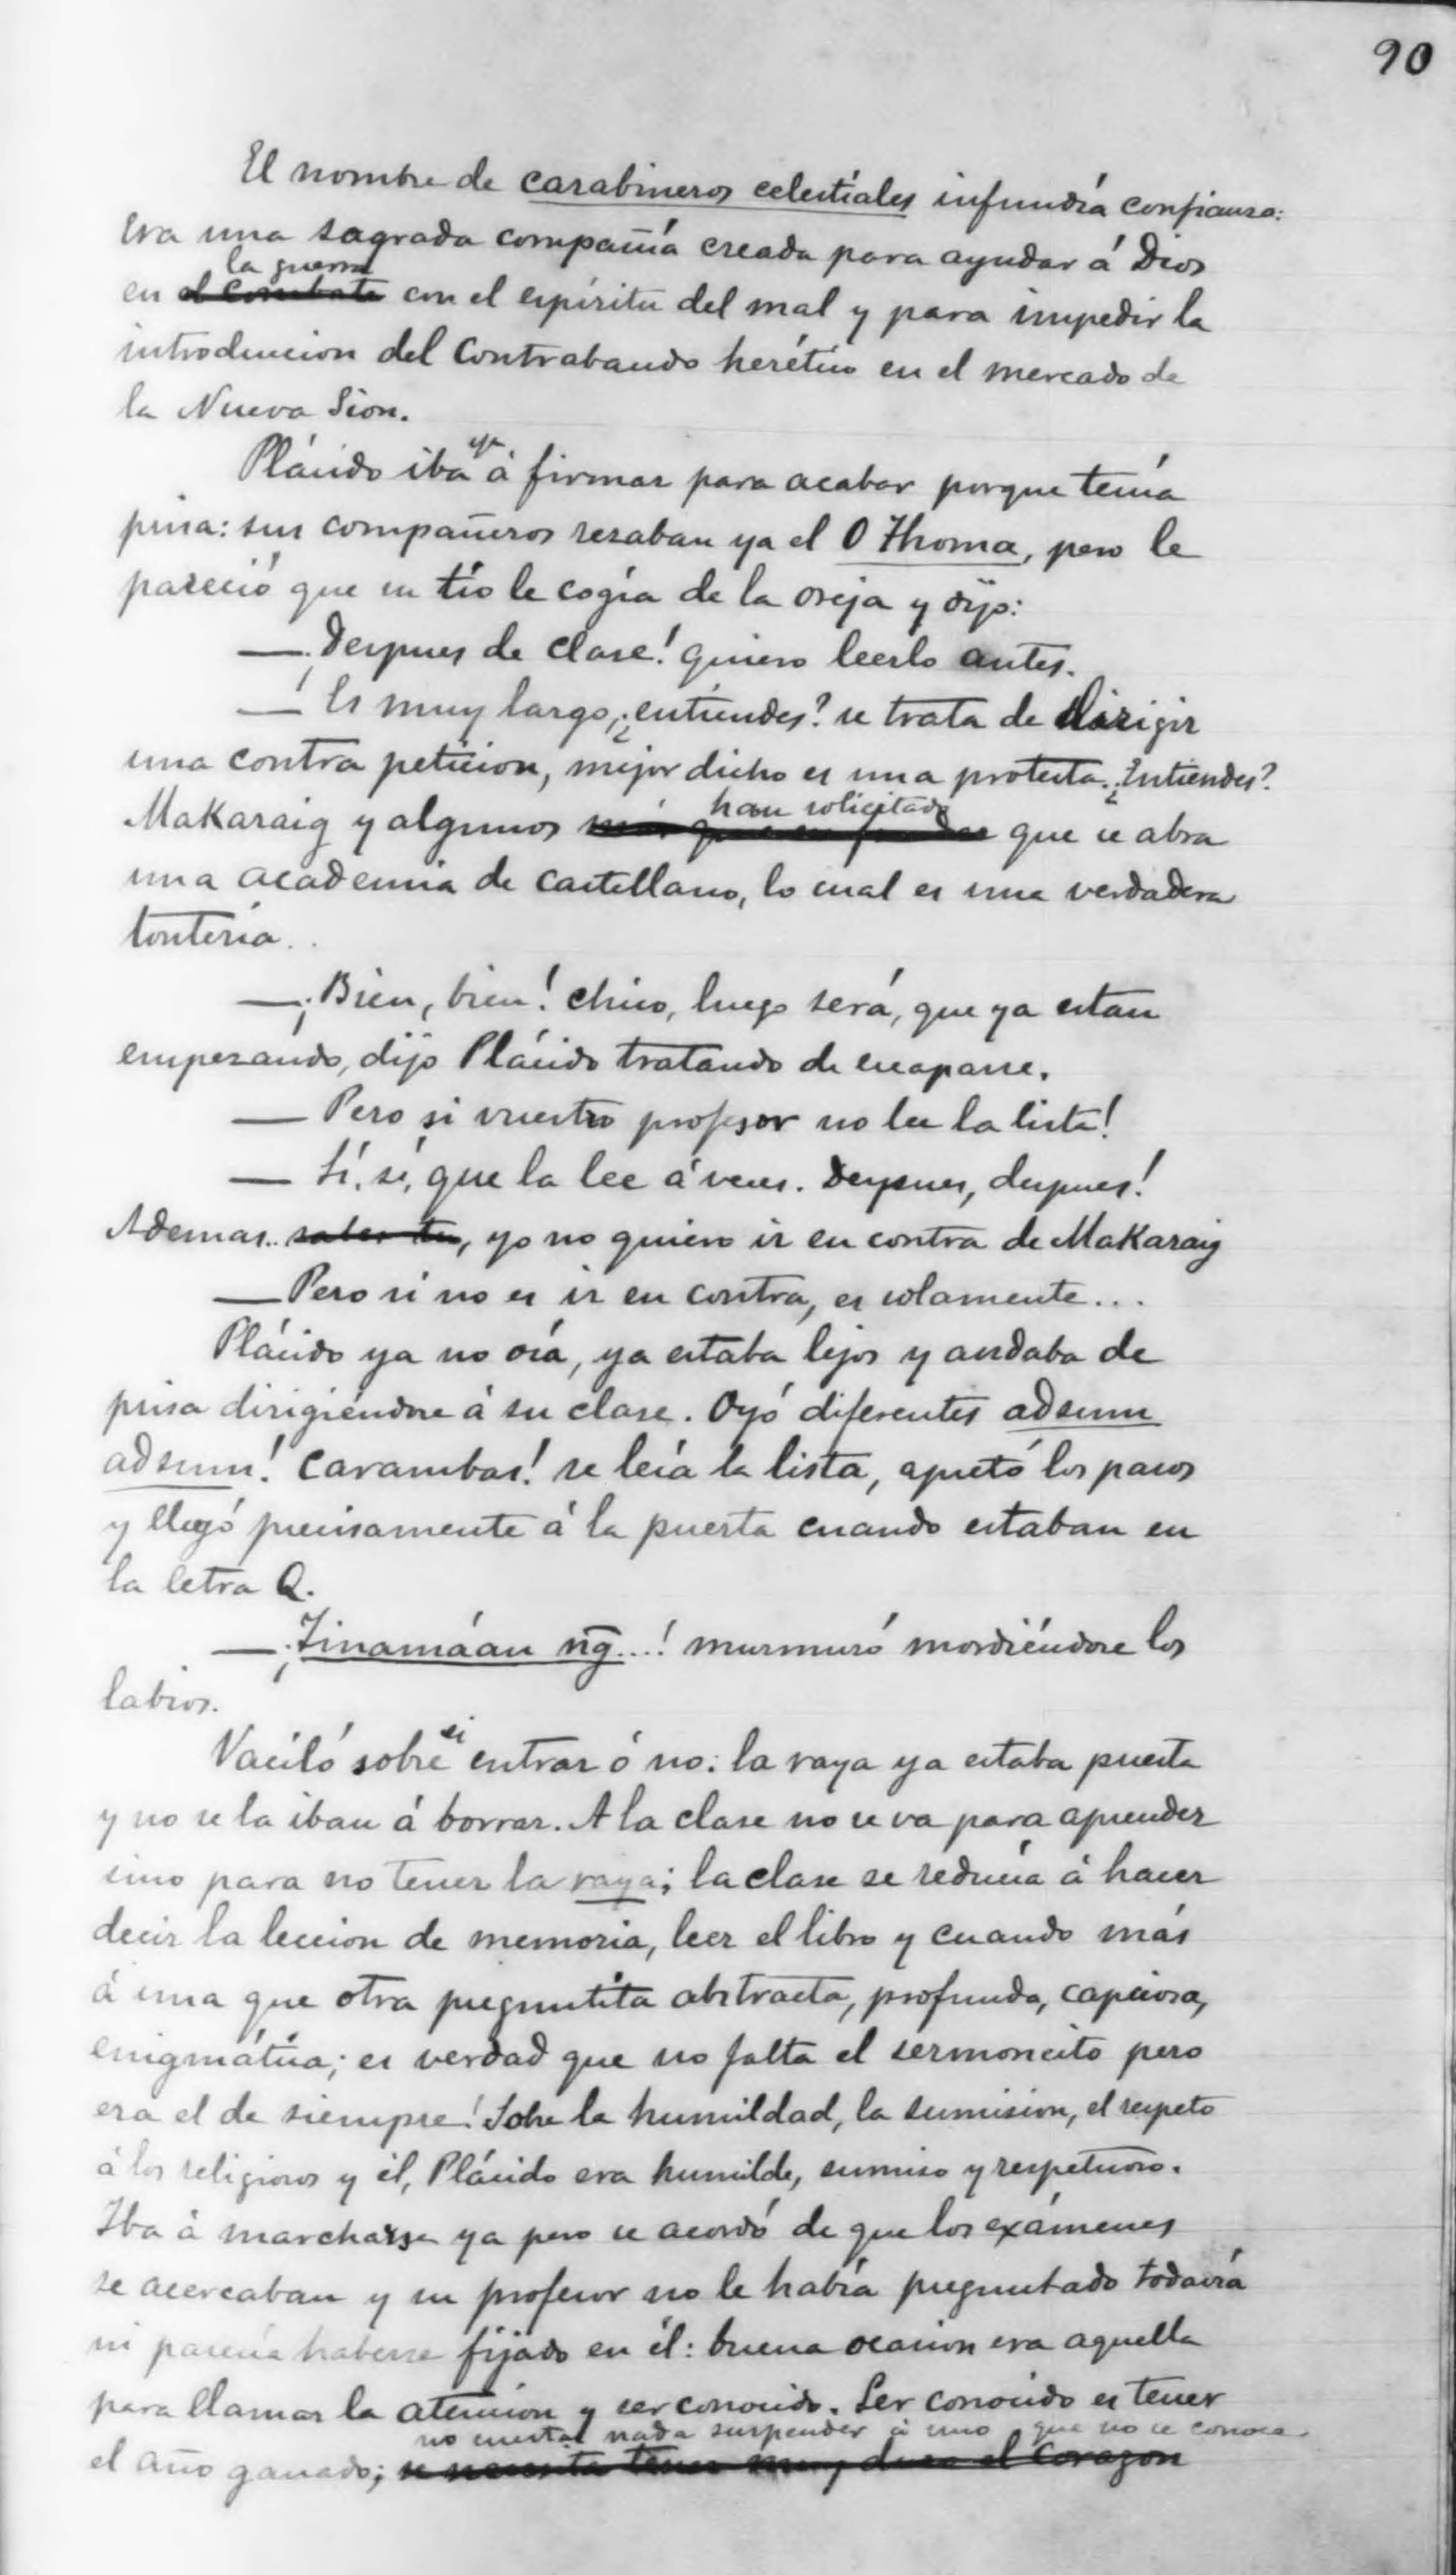 90
El nombre de carabineros celestiales infundía confianza:
Era una sagrada compañía creada para ayudar á Dios
la guerra
en el combate con el espíritu del mal y para impedir la
introduccion del contrabando herético en el mercado de
la Nueva Sion.
ya
Plácido iba á firmar para acabar porque tenía
prisa: sus compañeros rezaban ya el O Thoma, pero le
pareció que su tío le cogía de la oreja y dijo:
— ¡Despues de clase! quiero leerlo antes.
— Es muy largo, ¿entiendes? se trata de dirigir
una contra peticion, mejor dicho es una protesta. ¿Entiendes?
han solicitado
Makaraig y algunos que se abra
una academia de castellano, lo cual es una verdadera
tontería..
— ¡Bien, bien! chico, luego será, que ya estan
empezando, dijo Plácido tratando de escaparse.
— Pero si vuestro profesor no lee la lista!
— Sí, sí, que la lee á veces. Despues, despues!
Ademas.. sabes tu, yo no quiero ir en contra de Makaraig
— Pero si no es ir en contra, es solamente...
Plácido ya no oía, ya estaba lejos y andaba de
prisa dirigiéndose á su clase. Oyó diferentes adsum
adsum! Carambas! se leía la lista, apretó los pasos
y llegó precisamente á la puerta cuando estaban en
la letra Q.
— ¡Tinamáan ñg...! murmuró mordiéndose los
labios.
si
Vaciló sobre entrar ó no: la raya ya estaba puesta
y no se la iban á borrar. A la clase no se va para aprender
sino para no tener la raya; la clase se reducía á hacer
decir la leccion de memoria, leer el libro y cuando más
á una que otra preguntita abstracta, profunda, capciosa,
enigmática; es verdad que no falta el sermoncito pero
era el de siempre! Sobre la humildad, la sumision, el respeto
á los religiosos y él, Plácido era humilde, sumiso y respetuoso.
Iba á marcharse ya pero se acordó de que los exámenes
se acercaban y su profesor no le había preguntado todavía
ni parecía haberse fijado en él: buena ocasion era aquella
para llamar la atencion y ser conocido. Ser conocido es tener
no cuesta nada suspender á uno que no se conoce
el año ganado; se necesita tener muy duro el corazon